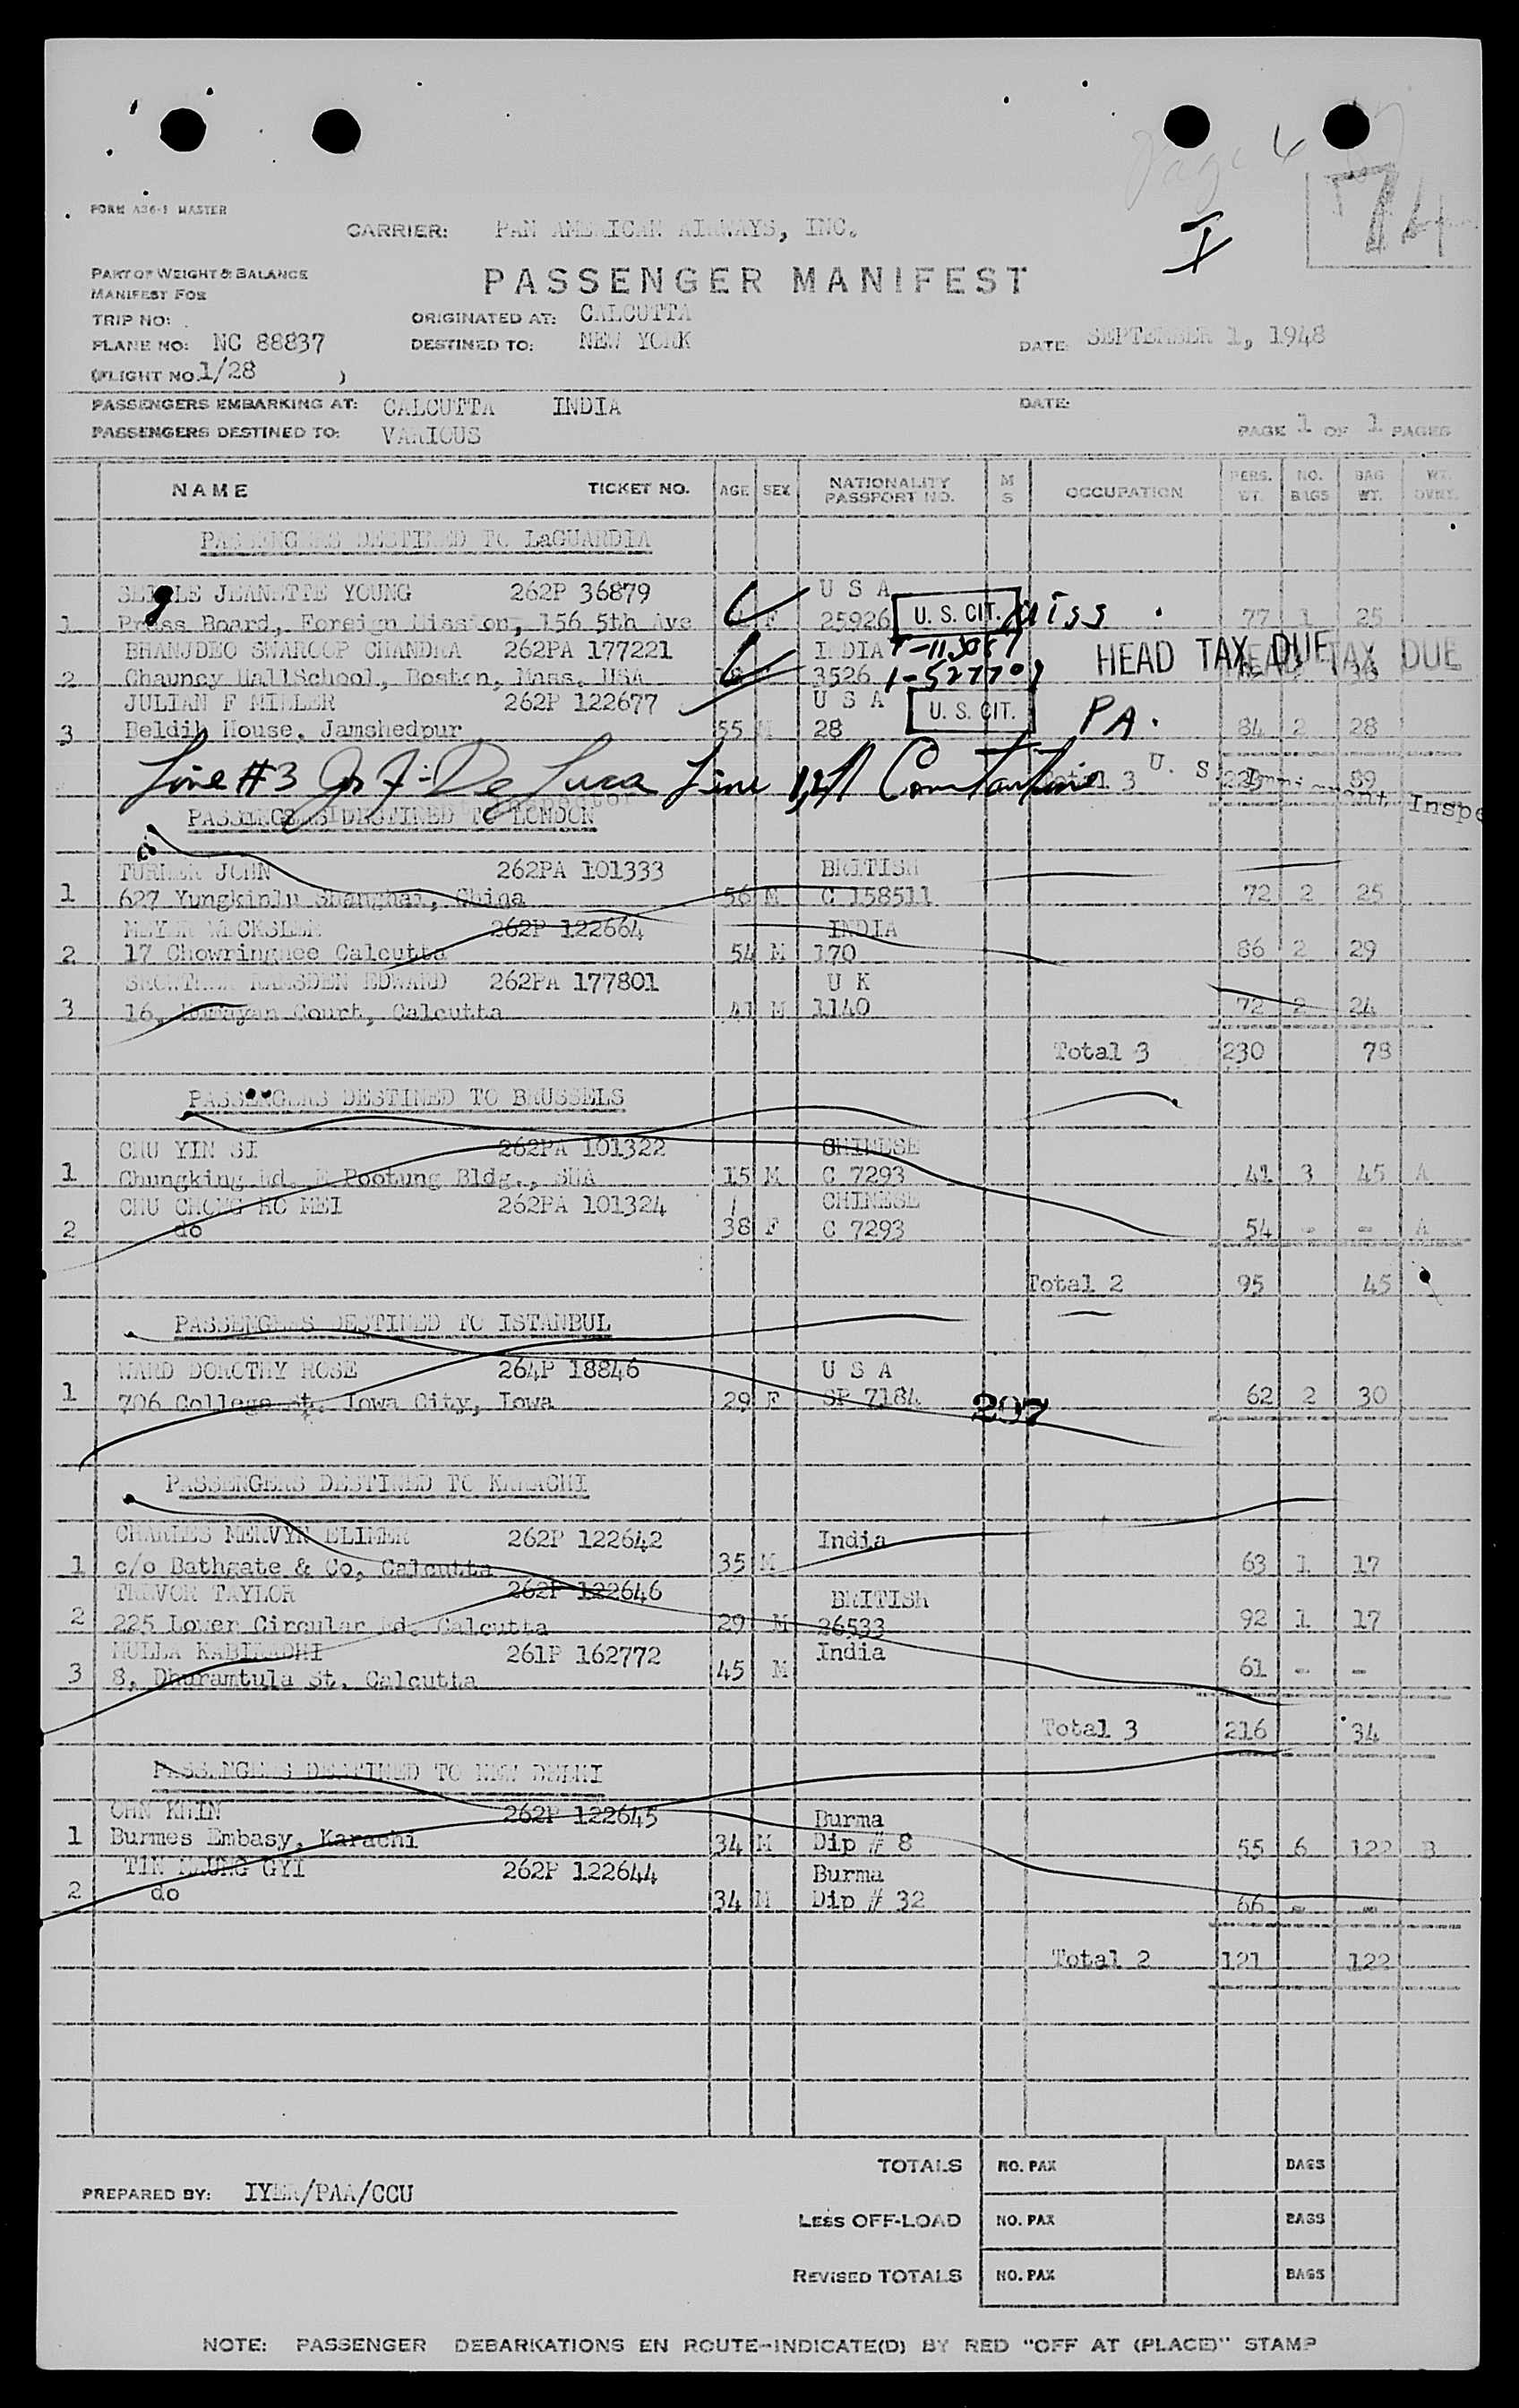 Page 6
I
74
FORM A36-1 MASTER
CARRIER: PAN AMERICAN AIRWAYS, INC.
PART OF WEIGHT & BALANCE
MANIFEST FOR
PASSENGER MANIFEST
TRIP NO:
ORIGINATED AT: CALCUTTA
PLANE NO: NC 88837
DESTINED TO: NEW YORK
DATE: SEPTEMBER 1, 1948
(FLIGHT NO. 1/28 )
PASSENGERS EMBARKING AT: CALCUTTA INDIA
DATE:
PASSENGERS DESTINED TO: VARIOUS
PAGE 1 OF 1 PAGES
NAME TICKET NO. AGE SEX NATIONALITY PASSPORT NO. M S OCCUPATION PERS. WT. NO. BAGS BAG WT. WT. OVNT.
PASSENGERS DESTINED TO LaGUARDIA
JEANETTE YOUNG 262P 36879 U S A
1 Press Board, Foreign Mission, 156 5th Ave F 25926 U. S. CIT. Miss 77 1 25
BHANJDEO SWAROOP CHANDRA 262PA 177221 INDIA
HEAD TAX DUE HEAD TAX DUE
2 Chauncy HallSchool, Boston, Mass, USA 3526 36
JULIAN F MILLER 262P 122677 U S A
3 Beldih House, Jamshedpur 55 M 28 U. S. CIT. PA. 84 2 28
Total 3 89
Line #3 De Luca Line Constantine
U. S. Inspe
PASSENGERS DESTINED TO LONDON
TURNER JOHN 262PA 101333 BRITISH
1 627 Yungkinlu Shanghai, China 56 M C 158511 72 2 25
MEYER 262P 122664 INDIA
2 17 Chowringhee Calcutta 54 M 170 86 2 29
RAMSDEN EDWARD 262PA 177801 U K
3 16, Court, Calcutta 41 M 1140 72 2 24
Total 3 230 78
PASSENGERS DESTINED TO BRUSSELS
CHU YIN SI 262PA 101322 CHINESE
1 Chungking Rd. Pootung Bldg., SHA 15 M C 7293 41 3 45 A
CHU CHONG HO MEI 262PA 101324 CHINESE
2 do 38 F C 7293 54 - - A
Total 2 95 45
PASSENGERS DESTINED TO ISTANBUL
WARD DOROTHY ROSE 264P 18846 U S A
1 706 College st. Iowa City, Iowa 29 F SP 7184 207 62 2 30
PASSENGERS DESTINED TO KARACHI
CHARLES MERVYN ELIMER 262P 122642 India
1 c/o Bathgate & Co, Calcutta 35 M 63 1 17
TREVOR TAYLOR 262P 122646 BRITISH
2 225 Lower Circular Rd. Calcutta 29 M 26533 92 1 17
MULLA 261P 162772 India
3 8, Dhuramtula St. Calcutta 45 M 61 - -
Total 3 216 34
PASSENGERS DESTINED TO NEW DELHI
OHN KHIN 262P 122645 Burma
1 Burmes Embasy, Karachi 34 M Dip # 8 55 6 122 B
TIN MAUNG GYI 262P 122644 Burma
2 do 34 M Dip # 32 66 - -
Total 2 121 122
TOTALS NO. PAX BAGS
PREPARED BY: IYER/PAA/CCU
LESS OFF-LOAD NO. PAX BAGS
REVISED TOTALS NO. PAX BAGS
NOTE: PASSENGER DEBARKATIONS EN ROUTE--INDICATE(D) BY RED "OFF AT (PLACE)" STAMP